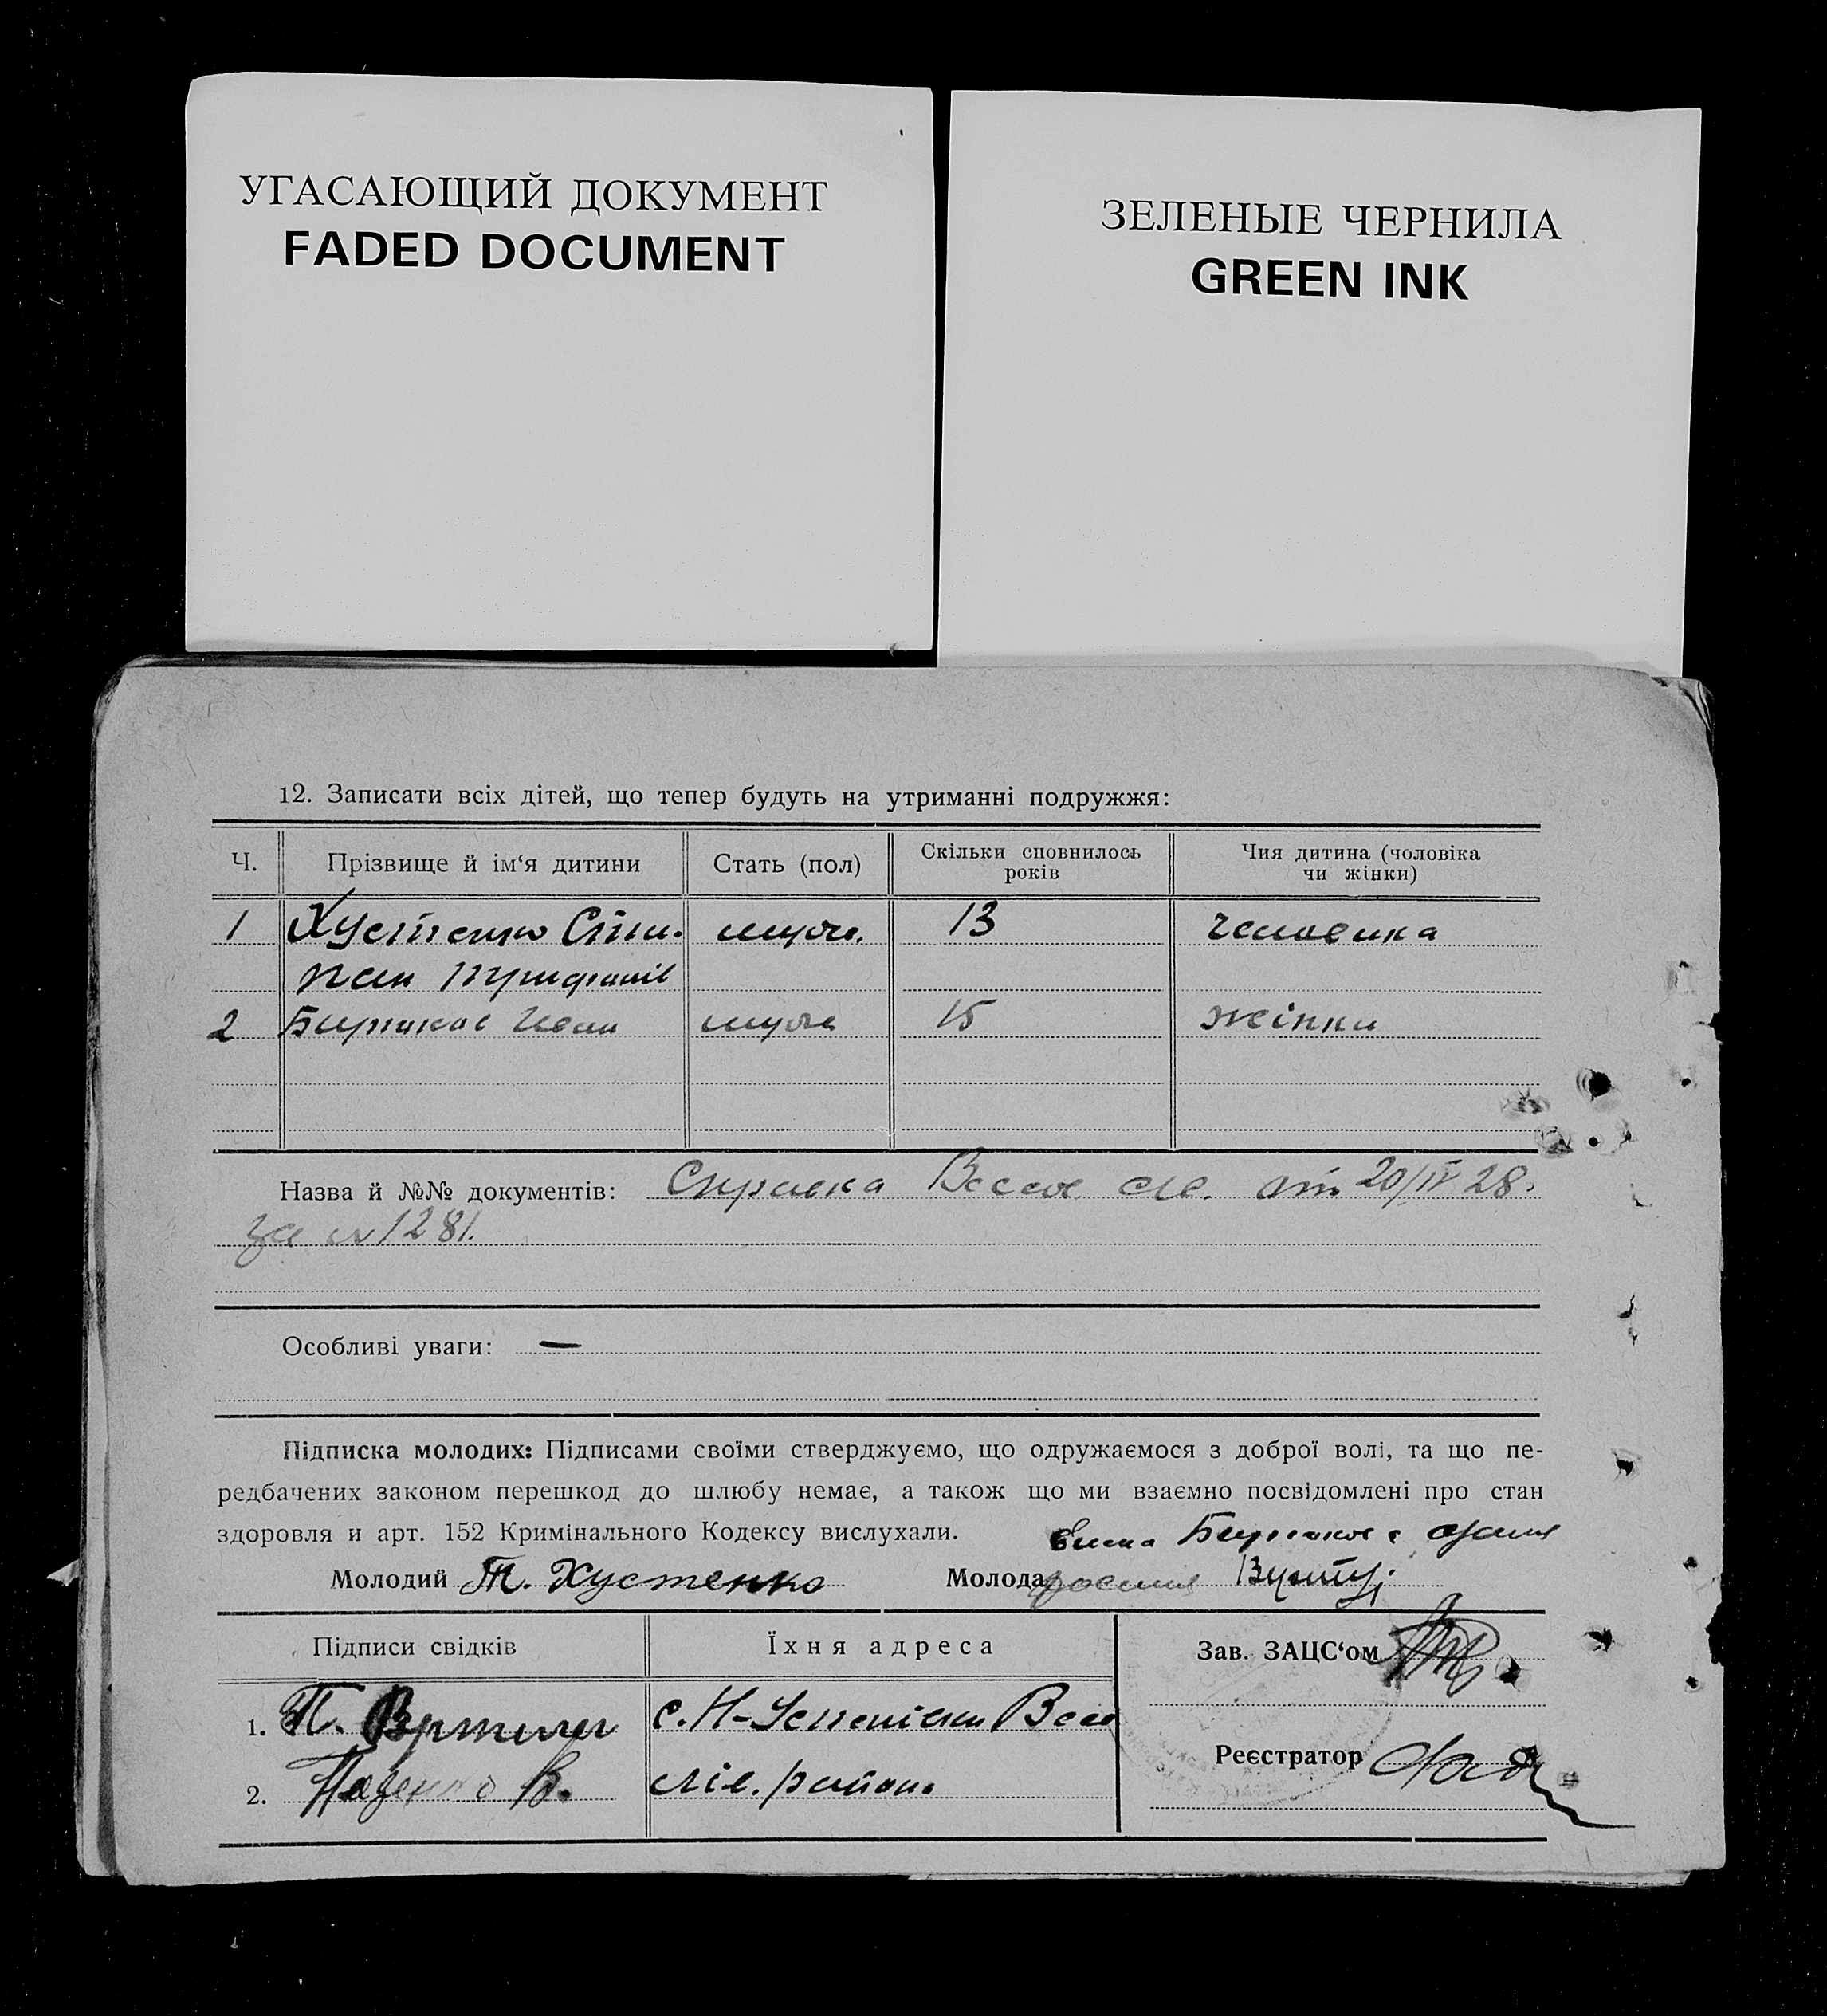 УГАСАЮЩИЙ ДОКУМЕНТ
FADED DOCUMENT
ЗЕЛЕНЫЕ ЧЕРНИЛА
GREEN INK
12. Записати всіх дітей, що тепер будуть на утриманні подружжя:
Ч. Прізвище й ім‘я дитини Стать (пол) Скільки сповнилось років Чия дитина (чоловіка чи жінки)
1 Хустенко 13 человика
2 Іван 15 жінки
Назва й №№ документів: Справка от 20/IV 28.
за № 1281.
Особливі уваги: —
Підписка молодих: Підписами своїми стверджуємо, що одружаємося з доброї волі, та що пе-
редбачених законом перешкод до шлюбу немає, а також що ми взаємно посвідомлені про стан
здоровля и арт. 152 Кримінального Кодексу вислухали.
Молодий Т. Хустенко Молода
Підписи свідків Їхня адреса Зав. ЗАЦС‘ом
1. П. с. Н-
2. В. району
Реєстратор